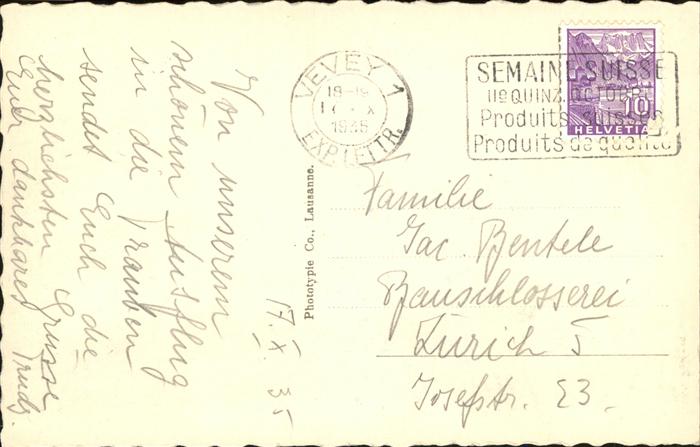 Von unserem
schönem Ausflug
in die Trauben
sendet Euch die
herzlichsten Grüsse
Euer dankbares Trudi.
17. X. 35
Phototypie Co., Lausanne.
VEVEY 1
18-19
17 X
1935
EXP. LETTR.
SEMAINE SUISSE
IIe QUINZ. OCTOBRE
Produits suisses
Produits de qualité
10
HELVETIA
Familie
Jac. Bentele
Bauschlosserei
Zürich 5
Josefstr. 23.